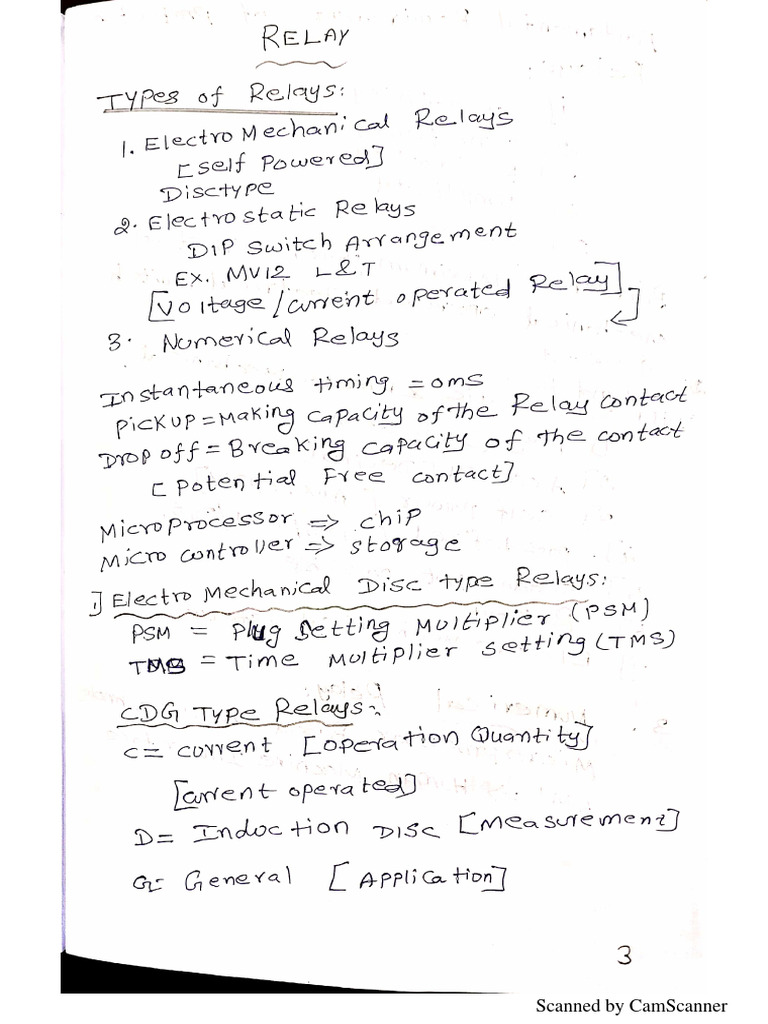 RELAY
Types of Relays:
1. Electro Mechanical Relays
[Self Powered]
Disctype
2. Electrostatic Relays
DIP Switch Arrangement
EX. MV12 L&T
[Voltage/current operated Relay]
3. Numerical Relays
Instantaneous timing = 0ms
Pickup = Making capacity of the Relay contact
Drop off = Breaking capacity of the contact
[Potential Free contact]
Microprocessor => chip
Micro controller => storage
1] Electro Mechanical Disc type Relays:
PSM = Plug Setting Multiplier (PSM)
TMS = Time Multiplier setting (TMS)
CDG Type Relays:
C = current [operation Quantity]
[current operated]
D = Induction Disc [Measurement]
G = General [Application]
3
Scanned by CamScanner